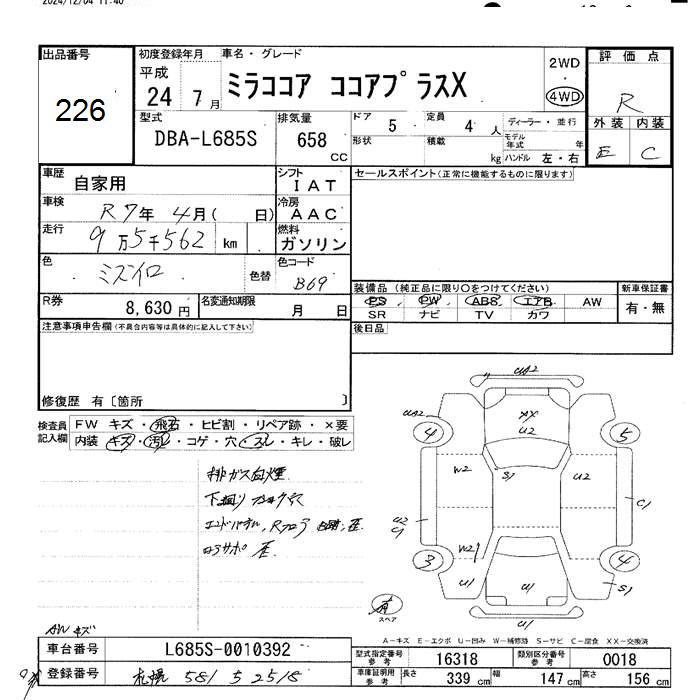 2024/12/04 11:40
出品番号
226
初度登録年月
平成
24 7月
車名・グレード
ミラココア ココアプラスX
2WD
・
4WD
評価点
R
外装 内装
E C
型式
DBA-L685S
排気量
658
CC
ドア
5
定員
4 人
ディーラー・並行
形状
積載
kg
モデル年式 年
ハンドル 左・右
車歴
自家用
シフト
IAT
セールスポイント(正常に機能するものに限ります)
車検
R7年 4月( 日)
冷房
AAC
走行
9万5千562 km
燃料
ガソリン
色
ミズイロ
色替
色コード
B69
装備品(純正品に限り○をつけてください)
新車保証書
PS PW ABS エアB AW
有・無
SR ナビ TV カワ
R券
8,630円
名変通知期限
月 日
後日品
注意事項申告欄(不具合内容等は具体的に記入して下さい)
修復歴 有〔箇所 〕
検査員記入欄
FW キズ・飛石・ヒビ割・リペア跡・×要
内装 キズ・汚れ・コゲ・穴・スレ・キレ・破レ
排ガス白煙
UA2
AX
U2
UA2
4
5
W2
S1
U2
C1
U2
C1
3
W2
4
U1
U1
S1
U1
有
スペア
A-キズ E-エクボ U-凹み W-補修跡 S-サビ C-腐食 XX-交換済
AWキズ
車台番号
L685S-0010392
登録番号
札幌 581 う 2518
型式指定番号
参考
16318
類別区分番号
参考
0018
車庫証明用
参考
長さ 339 cm
幅 147 cm
高さ 156 cm